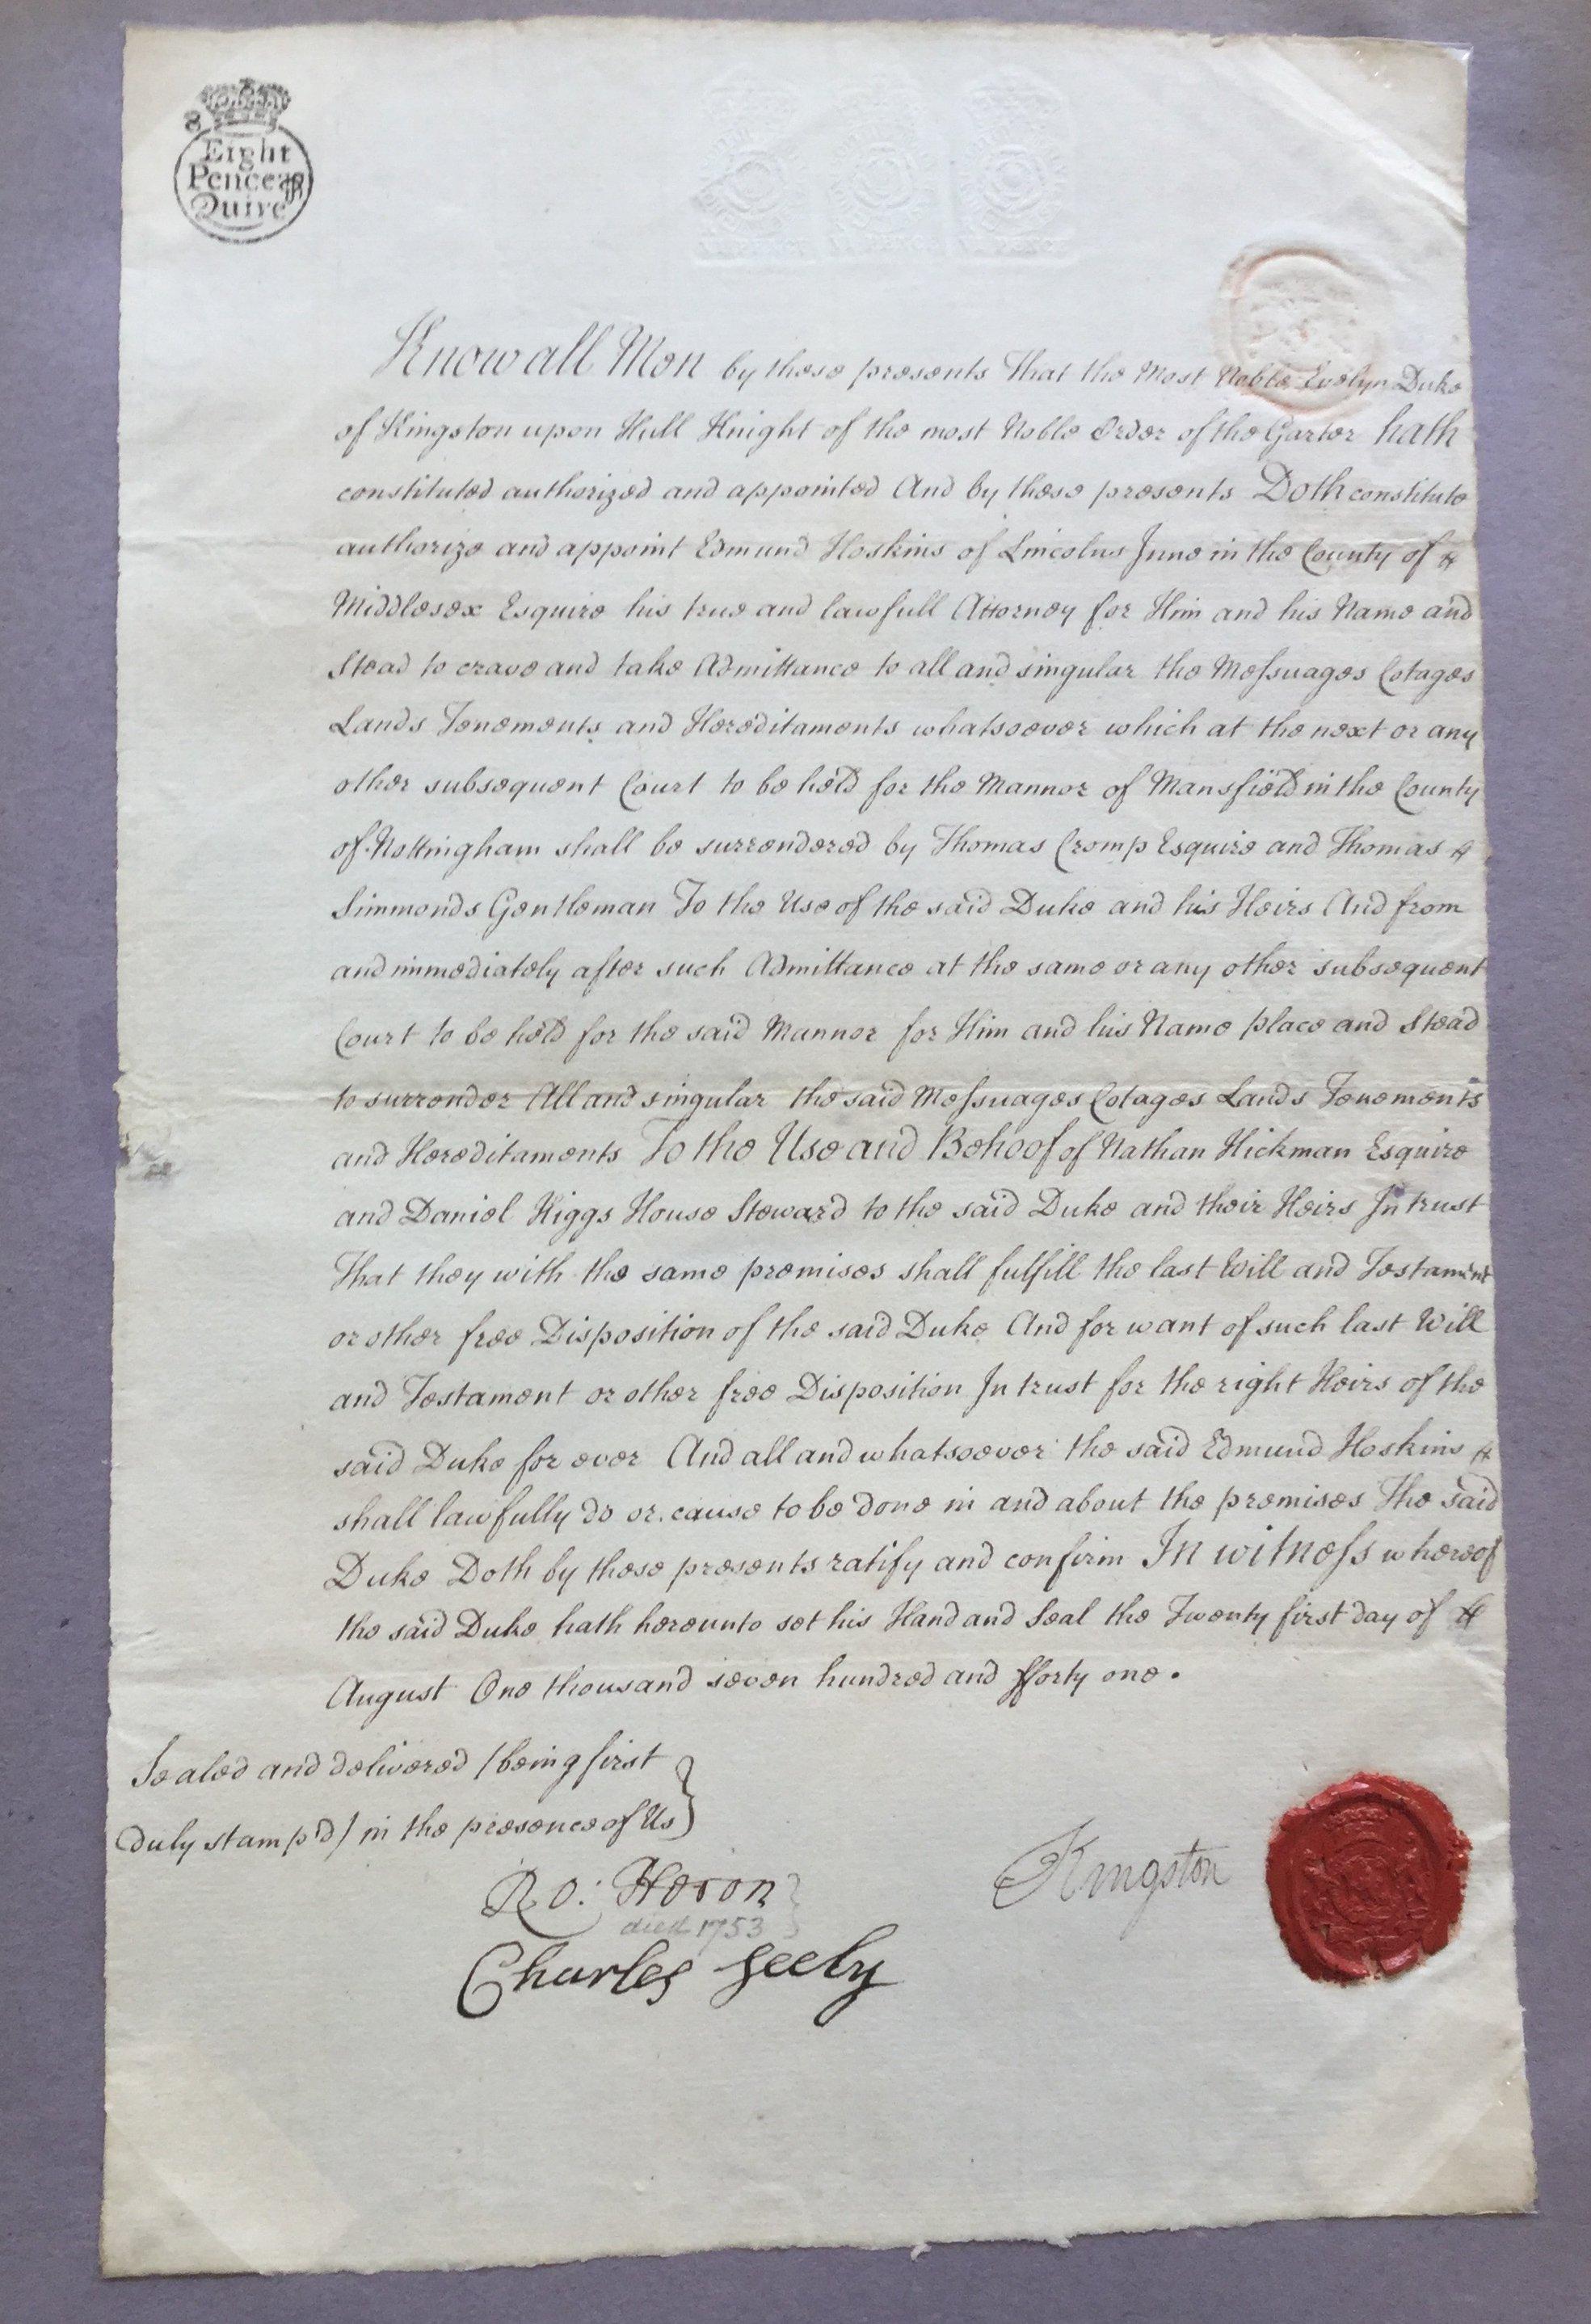 8
Eight
Pence per
Quire
Know all Men by these presents That the Most Noble Evelyn Duke
of Kingston upon Hull Knight of the most Noble Order of the Garter hath
constituted authorized and appointed And by these presents Doth constitute
authorize and appoint Edmund Hoskins of Lincolns Inne in the County of
Middlesex Esquire his true and lawfull Attorney for Him and his Name and
Stead to crave and take Admittance to all and singular the Messuages Cotages
Lands Tenements and Hereditaments whatsoever which at the next or any
other subsequent Court to be held for the Mannor of Mansfield in the County
of Nottingham shall be surrendered by Thomas Cromp Esquire and Thomas
Simmonds Gentleman To the Use of the said Duke and his Heirs And from
and immediately after such Admittance at the same or any other subsequent
Court to be held for the said Mannor for Him and his Name place and Stead
to surrender All and singular the said Messuages Cotages Lands Tenements
and Hereditaments To the Use and Behoof of Nathan Hickman Esquire
and Daniel Higgs House Steward to the said Duke and their Heirs In trust
That they with the same premises shall fulfill the last Will and Testament
or other free Disposition of the said Duke And for want of such last Will
and Testament or other free Disposition In trust for the right Heirs of the
said Duke for ever And all and whatsoever the said Edmund Hoskins
shall lawfully do or cause to be done in and about the premises The said
Duke Doth by these presents ratify and confirm In witness whereof
the said Duke hath hereunto set his Hand and Seal the Twenty first day of
August One thousand seven hundred and fforty one.
Sealed and delivered /being first
duly stamp'd/ in the presence of Us
Ro: Heron
died 1753
Charles Seely
Kingston